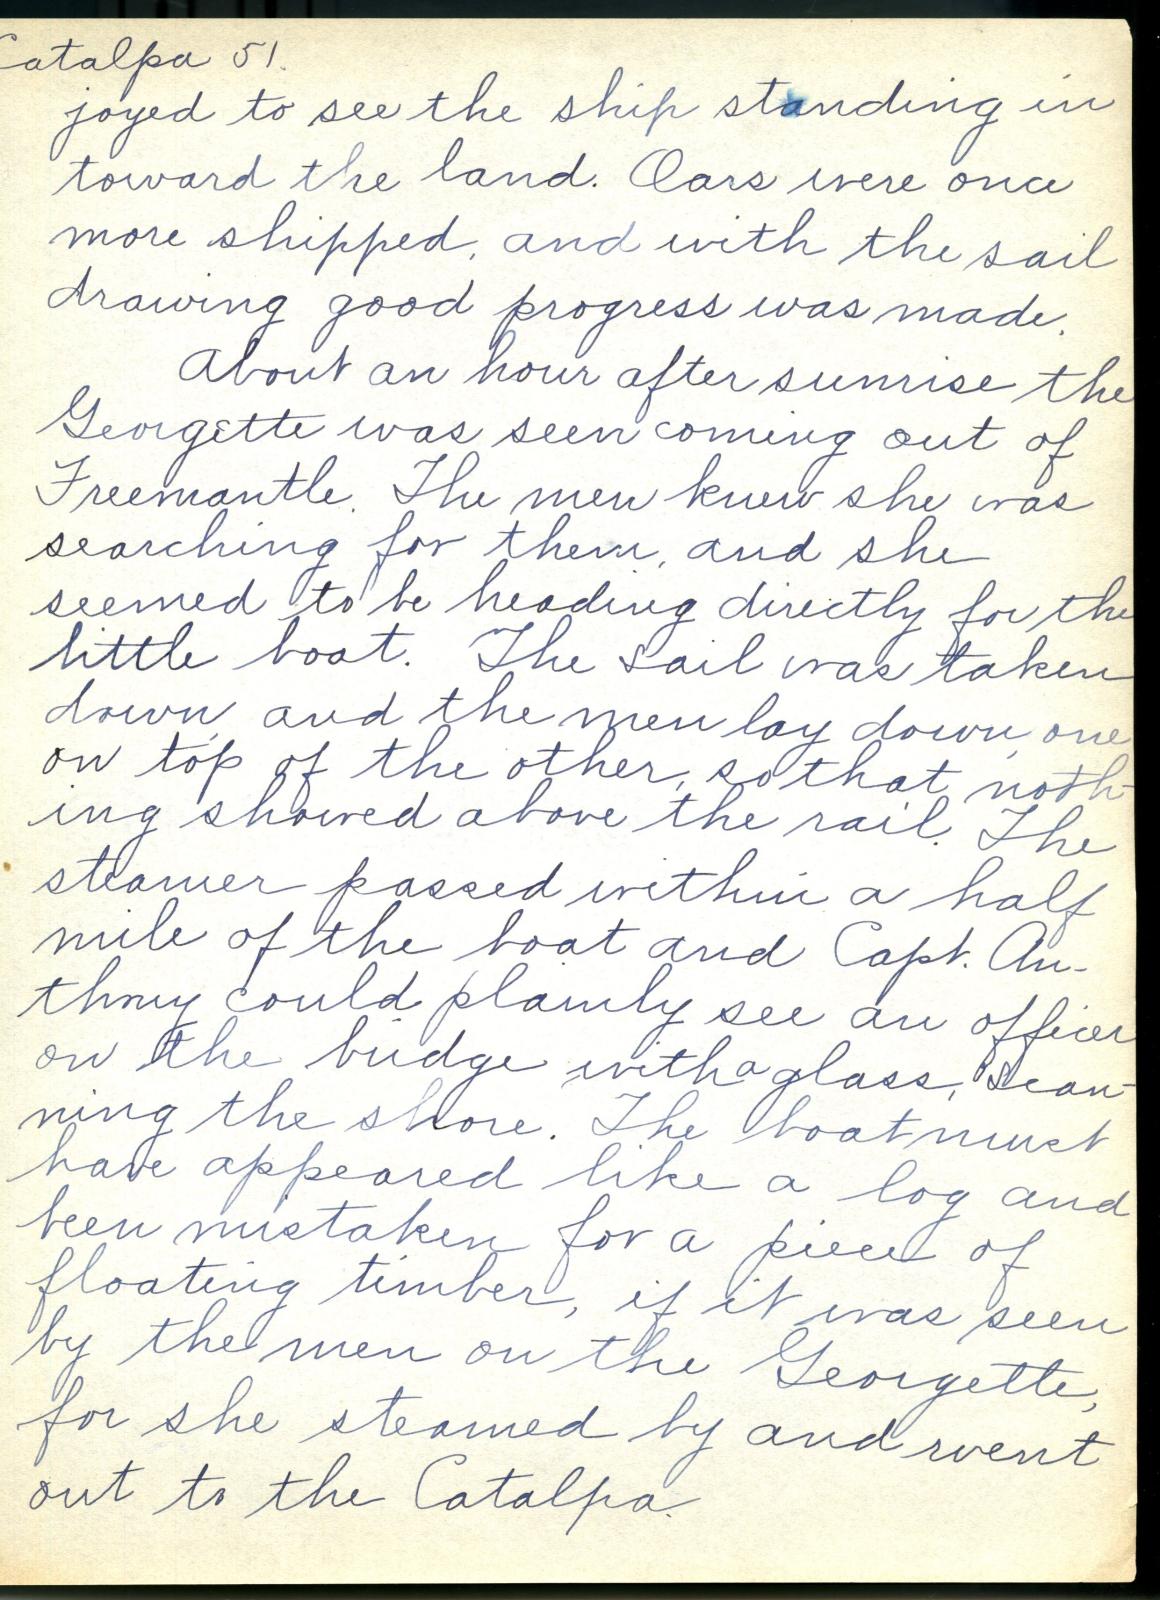 Catalpa 51.
joyed to see the ship standing in
toward the land. Oars were once
more shipped, and with the sail
drawing good progress was made.
About an hour after sunrise the
Georgette was seen coming out of
Freemantle. The men knew she was
searching for them, and she
seemed to be heading directly for the
little boat. The sail was taken
down, and the men lay down, one
on top of the other, so that noth-
ing showed above the rail. The
steamer passed within a half
mile of the boat and Capt. An-
thony could plainly see an officer
on the bridge with a glass, scan-
ning the shore. The boat must
have appeared like a log and
been mistaken for a piece of
floating timber, if it was seen
by the men on the Georgette,
for she steamed by and went
out to the Catalpa.